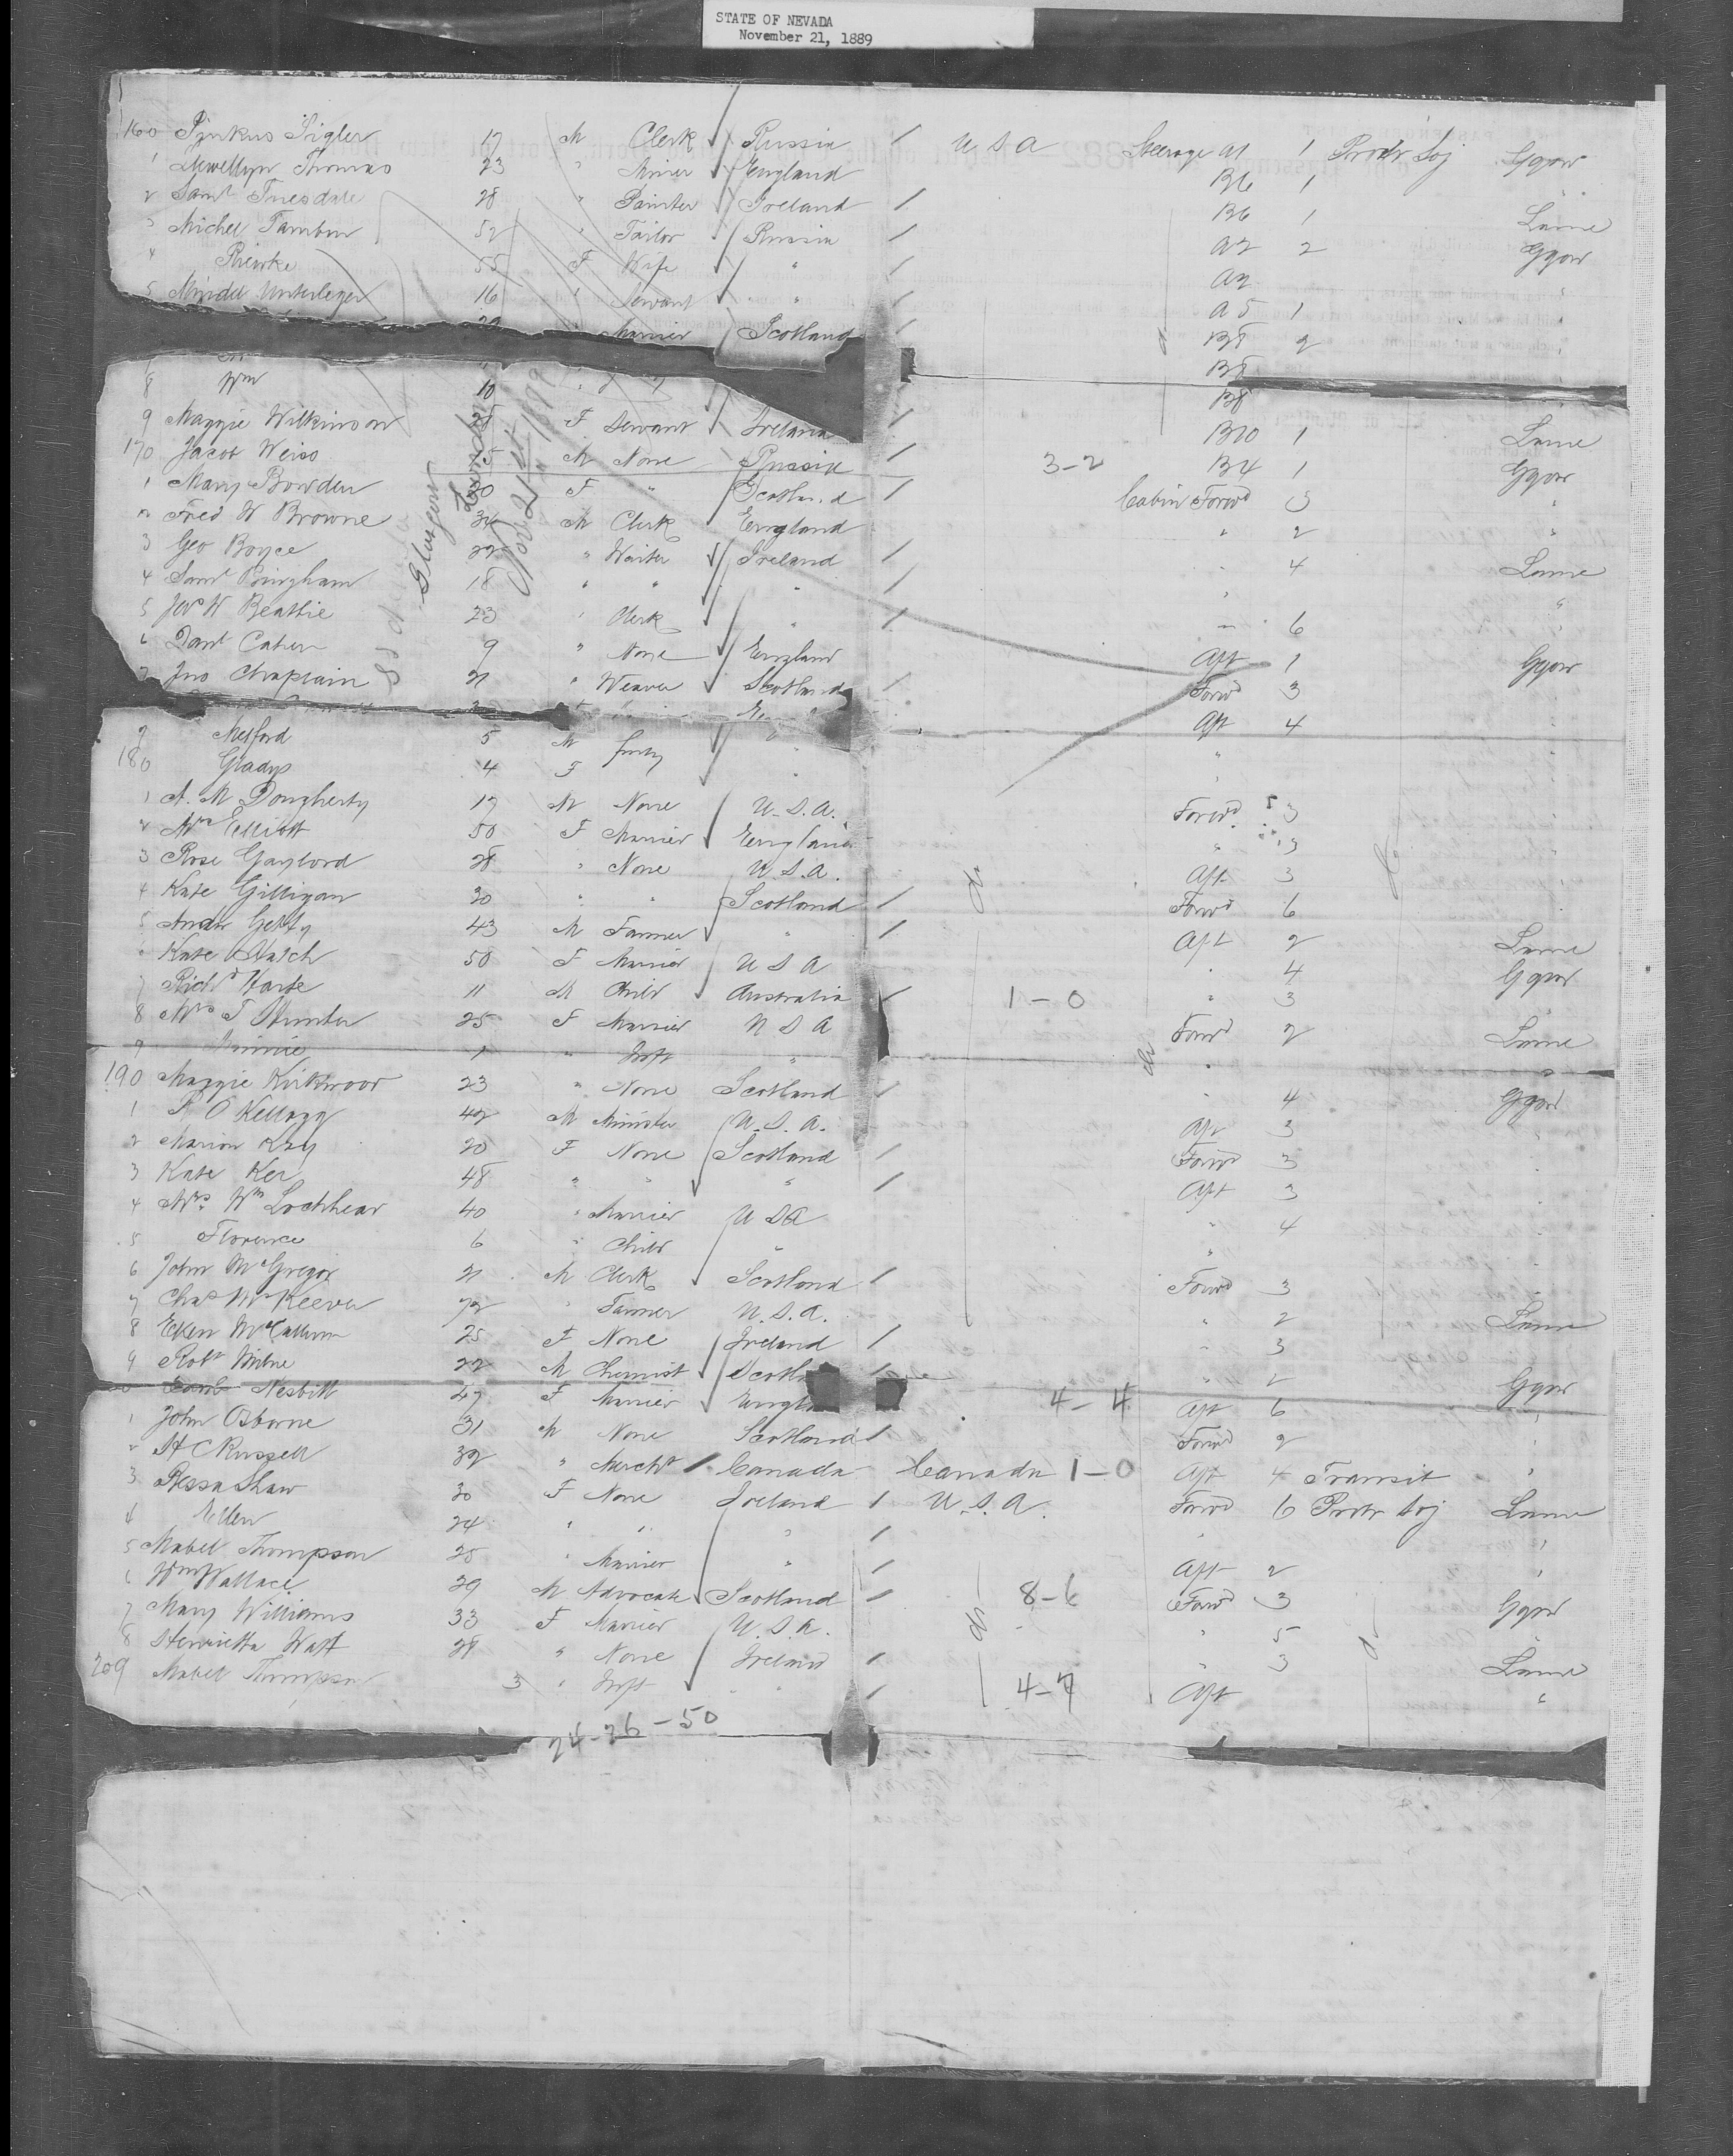 STATE OF NEVADA
November 21, 1889
160 Pinkus Sigler 17 M Clerk Russia / U S A Steerage A1 1 Protr Soj Ggow
1 Llewellyn Thomas 23 " Miner England B6 1
2 Saml Truesdale 28 " Painter Ireland / B6 1 Larne
3 Michel Tambur 52 " Tailor Russia / A2 2 Ggow
4 Riewke 55 F Wife " / A2
5 Myndel Unterleger 16 " Servant " / A5 1
Married Scotland / B8 2
B8
8 Wm 10 B8
9 Maggie Wilkinson 28 F Servant Ireland / B10 1 Larne
170 Jacob Weiss 15 M None Russia / 3-2 B4 1 Ggow
1 Mary Bowden 30 F " Scotland / Cabin Forwd 3 "
2 Fred W Browne 34 M Clerk England " 2 "
3 Geo Boyce 22 " Waiter Ireland / " 4 Larne
4 Saml Bingham 18 " " " / " "
5 Jno W Beattie 23 " Clerk " / " 6 "
6 Danl Cater 9 " None England Aft 1 Ggow
7 Jno Chaplain 21 " Weaver Scotland / Forwd 3
Aft 4
9 Melford 5 M "
180 Gladys 4 F "
1 A. M Dougherty 17 M None U.S.A. Forwd 3
2 Mrs Elliott 50 F Married England " 3
3 Rose Gaylord 28 " None U.S.A. Aft 3
4 Kate Gilligan 30 " " Scotland / Forwd 6
5 Andw Getty 43 M Farmer " / Aft 2 Larne
6 Kate Hatch 50 F Married U S A " 4 Ggow
7 Richd Harte 11 M Child Australia / 1-0 " 3
8 Mrs J Hunter 25 F Married U S A Forwd 2 Larne
9 Minnie 1 " Inft " " "
190 Maggie Kirkwood 23 " None Scotland / " 4 Ggow
1 R O Kellogg 42 M Minister U.S.A. Aft 3
2 Marion Kay 20 F None Scotland / Forwd 3
3 Kate Ker 48 " " " / Aft 3
4 Mrs Wm Lochhead 40 " Married U S A " 4
5 Florence 6 " Child " "
6 John McGregor 21 M Clerk Scotland / Forwd 3
7 Chas McKeever 72 " Farmer U.S.A. " 2 Larne
8 Ellen McCallum 25 F None Ireland / " 3
9 Robt Milne 22 M Chemist Scotl / " 2 Ggow
Nesbitt 27 F Married Engla 4-4 Aft 6 "
1 John Osborne 31 M None Scotland / Forwd 2 "
2 H C Russell 32 " Mercht / Canada Canada 1-0 Aft 4 Transit "
3 Bessa Shaw 30 F None Ireland / U.S.A. Forwd 6 Protr Soj Larne
4 Ellen 24 " " " / " "
5 Mabel Thompson 25 " Married " / Aft 2 "
6 Wm Wallace 29 M Advocate Scotland / 8-6 Forwd 3 Ggow
7 Mary Williams 33 F Married U.S.A. " 5 "
8 Henrietta Watt 28 " None Ireland / " 3 Larne
209 Mabel Thompson 3 " Inft " / 4-7 Aft "
24-26-50
Glasgow
Nov 21st 1889